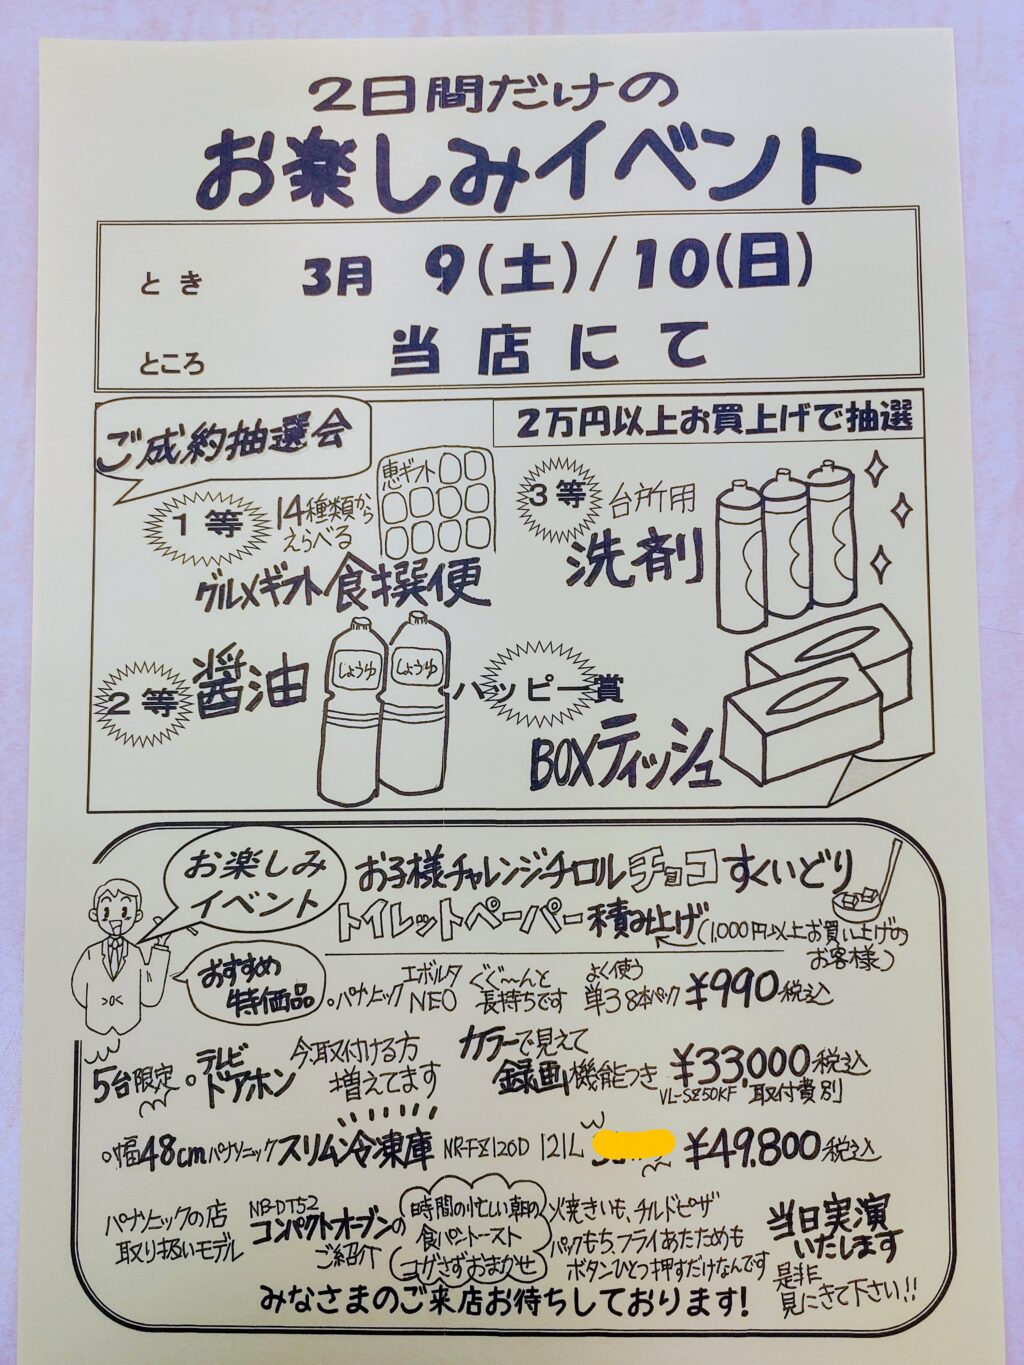 2日間だけの
お楽しみイベント
とき 3月 9(土)/10(日)
ところ 当店にて
ご成約抽選会
2万円以上お買上げで抽選
1等
14種類から
えらべる
恵ギフト
グルメギフト食撰便
3等
台所用
洗剤
2等
醤油
しょうゆ
しょうゆ
ハッピー賞
BOXティッシュ
お楽しみ
イベント
お子様チャレンジチロルチョコすくいどり
トイレットペーパー積み上げ(1,000円以上お買い上げの
お客様)
おすすめ
特価品
○パナソニック エボルタ
NEO
ぐぐ〜んと
長持ちです
よく使う
単3 8本パック
¥990税込
5台限定
○テレビ
ドアホン
今、取付ける方
増えてます
カラーで見えて
録画機能つき
¥33,000税込
VL-SZ50KF 取付費別
○幅48cmパナソニックスリム冷凍庫 NR-FZ120D 121L ¥49,800税込
パナソニックの店
取り扱いモデル
NB-DT52
コンパクトオーブンの
ご紹介
時間の忙しい朝の
食パントースト
コゲさずおまかせ
火焼きいも、チルドピザ
パックもち、フライあたためも
ボタンひとつ押すだけなんです
当日実演
いたします
是非
見にきて下さい!!
みなさまのご来店お待ちしております!